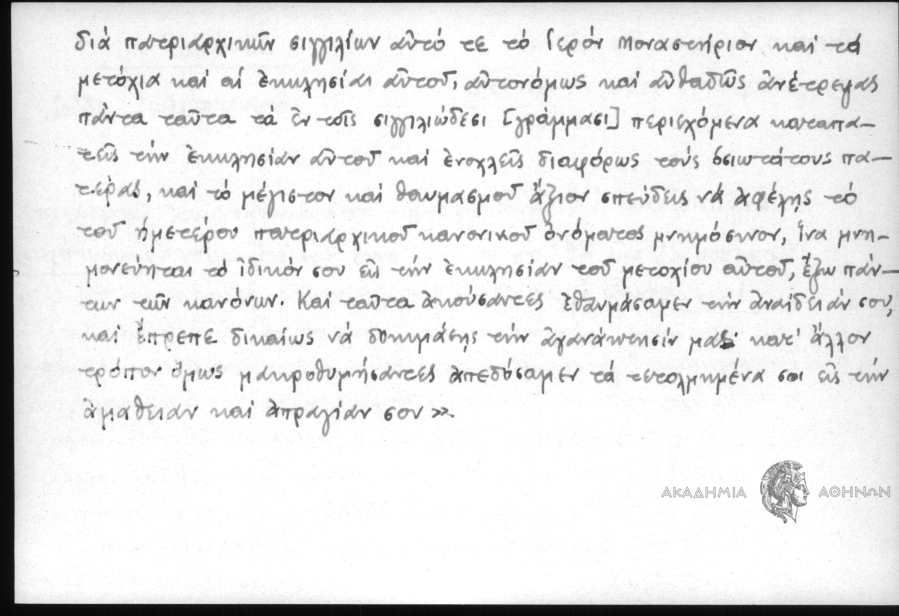 διά πατριαρχικῶν σιγγιλίων αὐτό τε τό ἱερόν μοναστήριον καί τά
μετόχια καί αἱ ἐκκλησίαι αὐτοῦ, αὐτονόμως καί αὐθαδῶς ἀνέτρεψας
πάντα ταῦτα τά ἐν τοῖς σιγγιλιώδεσι [γράμμασι] περιεχόμενα καταπα-
τεῖς τήν ἐκκλησίαν αὐτοῦ καί ἐνοχλεῖς διαφόρως τούς ὁσιωτάτους πα-
τέρας, καί τό μέγιστον καί θαυμασμοῦ ἄξιον σπεύδεις νά ἀφέλης τό
τοῦ ἡμετέρου πατριαρχικοῦ κανονικοῦ ὀνόματος μνημόσυνον, ἵνα μνη-
μονεύηται τό ἰδικόν σου εἰς τήν ἐκκλησίαν τοῦ μετοχίου αὐτοῦ, ἔξω πάν-
των τῶν κανόνων. Καί ταῦτα ἀκούσαντες ἐθαυμάσαμεν τήν ἀναίδειάν σου,
καί ἔπρεπε δικαίως νά δοκιμάσης τήν ἀγανάκτησίν μας· κατ' ἄλλον
τρόπον ὅμως μακροθυμήσαντες ἀπεδόσαμεν τά τετολμημένα σοι εἰς τήν
ἀμάθειαν καί ἀπραγίαν σου».
ΑΚΑΔΗΜΙΑ ΑΘΗΝΩΝ